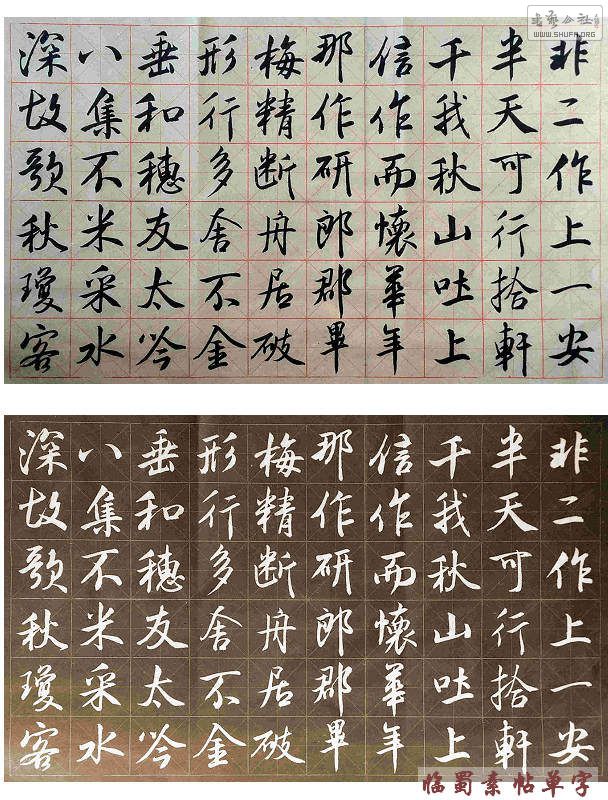 书艺公社
WWW.SHUFA.ORG
非二作上一安
半天可行拾軒
千我秋山吐上
信作而懷華年
那作研郎郡畢
梅精断舟居破
形行多舍不金
垂和穗友太吟
八集不米采水
深故歌秋瓊客
非二作上一安
半天可行拾軒
千我秋山吐上
信作而懷華年
那作研郎郡畢
梅精断舟居破
形行多舍不金
垂和穗友太吟
八集不米采水
深故歌秋瓊客
临蜀素帖单字